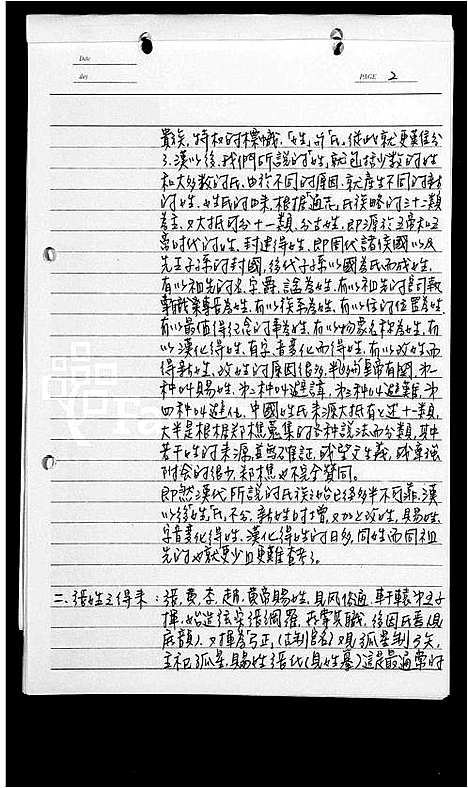 Date
day
PAGE 2
貴族,特权的標幟,「姓」所「氏」從此就更難分
了.漢以後,我們所說的「姓」就包括少数的姓
和大多数的氏.由於不同的原因,就產生不同的
的姓.姓氏的由来,根據「通志」氏族略的三十二類
為主,又大抵可分十一類.分古姓,即源於五帝和三
帝时代的姓,封建得姓,即周代諸侯國以及
先王子孫的封國,後代子孫以國為氏而成姓,
有以祖先的名字爵謚為姓,有以祖先的官司
職業專長為姓,有以次系為姓,有以住的位置為姓
有以最值得紀念的事為姓,有以物象名称為姓,有
以漢化得姓,有字音变化而得姓,有以改姓而
得新姓.改姓的原因很多,皇帝有關,第一
种叫賜姓,第二种叫避諱,第三种叫避難,第
四种叫避仇.中國姓氏来源大抵有上述十一類,
大半是根據郑樵蒐集的各种說法而分類,其中
若干姓的来源,並無確証,或望文生義,或牽強
附会的很少,郑樵也不完全贊同.
即然漢代所說的氏族之始已経多半不可靠,漢
以後「姓」「氏」不分,新姓的增,又加上改姓,賜姓
字音变化得姓,漢化得姓的日多,同姓而同祖
先的也就更少且更難查考了.
二、張姓之得来:張、黄、李、趙,黄帝賜姓,見风俗通.軒轅第五子
揮,始造弦,实張網羅,世掌其職,後因氏焉(見
唐韻).又揮為弓正,(古制官名)观弧星,制弓矢,
主祀弧星,賜姓張氏(見姓纂)這是最通常的